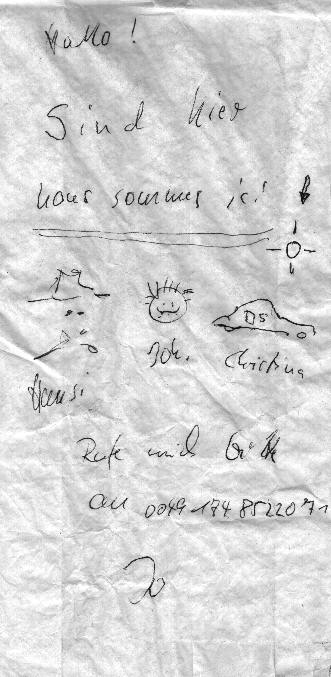 Hallo!
Sind hier
nous sommes ici!
DS
Joh.
Christina
Hansi
Rufe mich bitte
an 0049 174 8522071
Jo